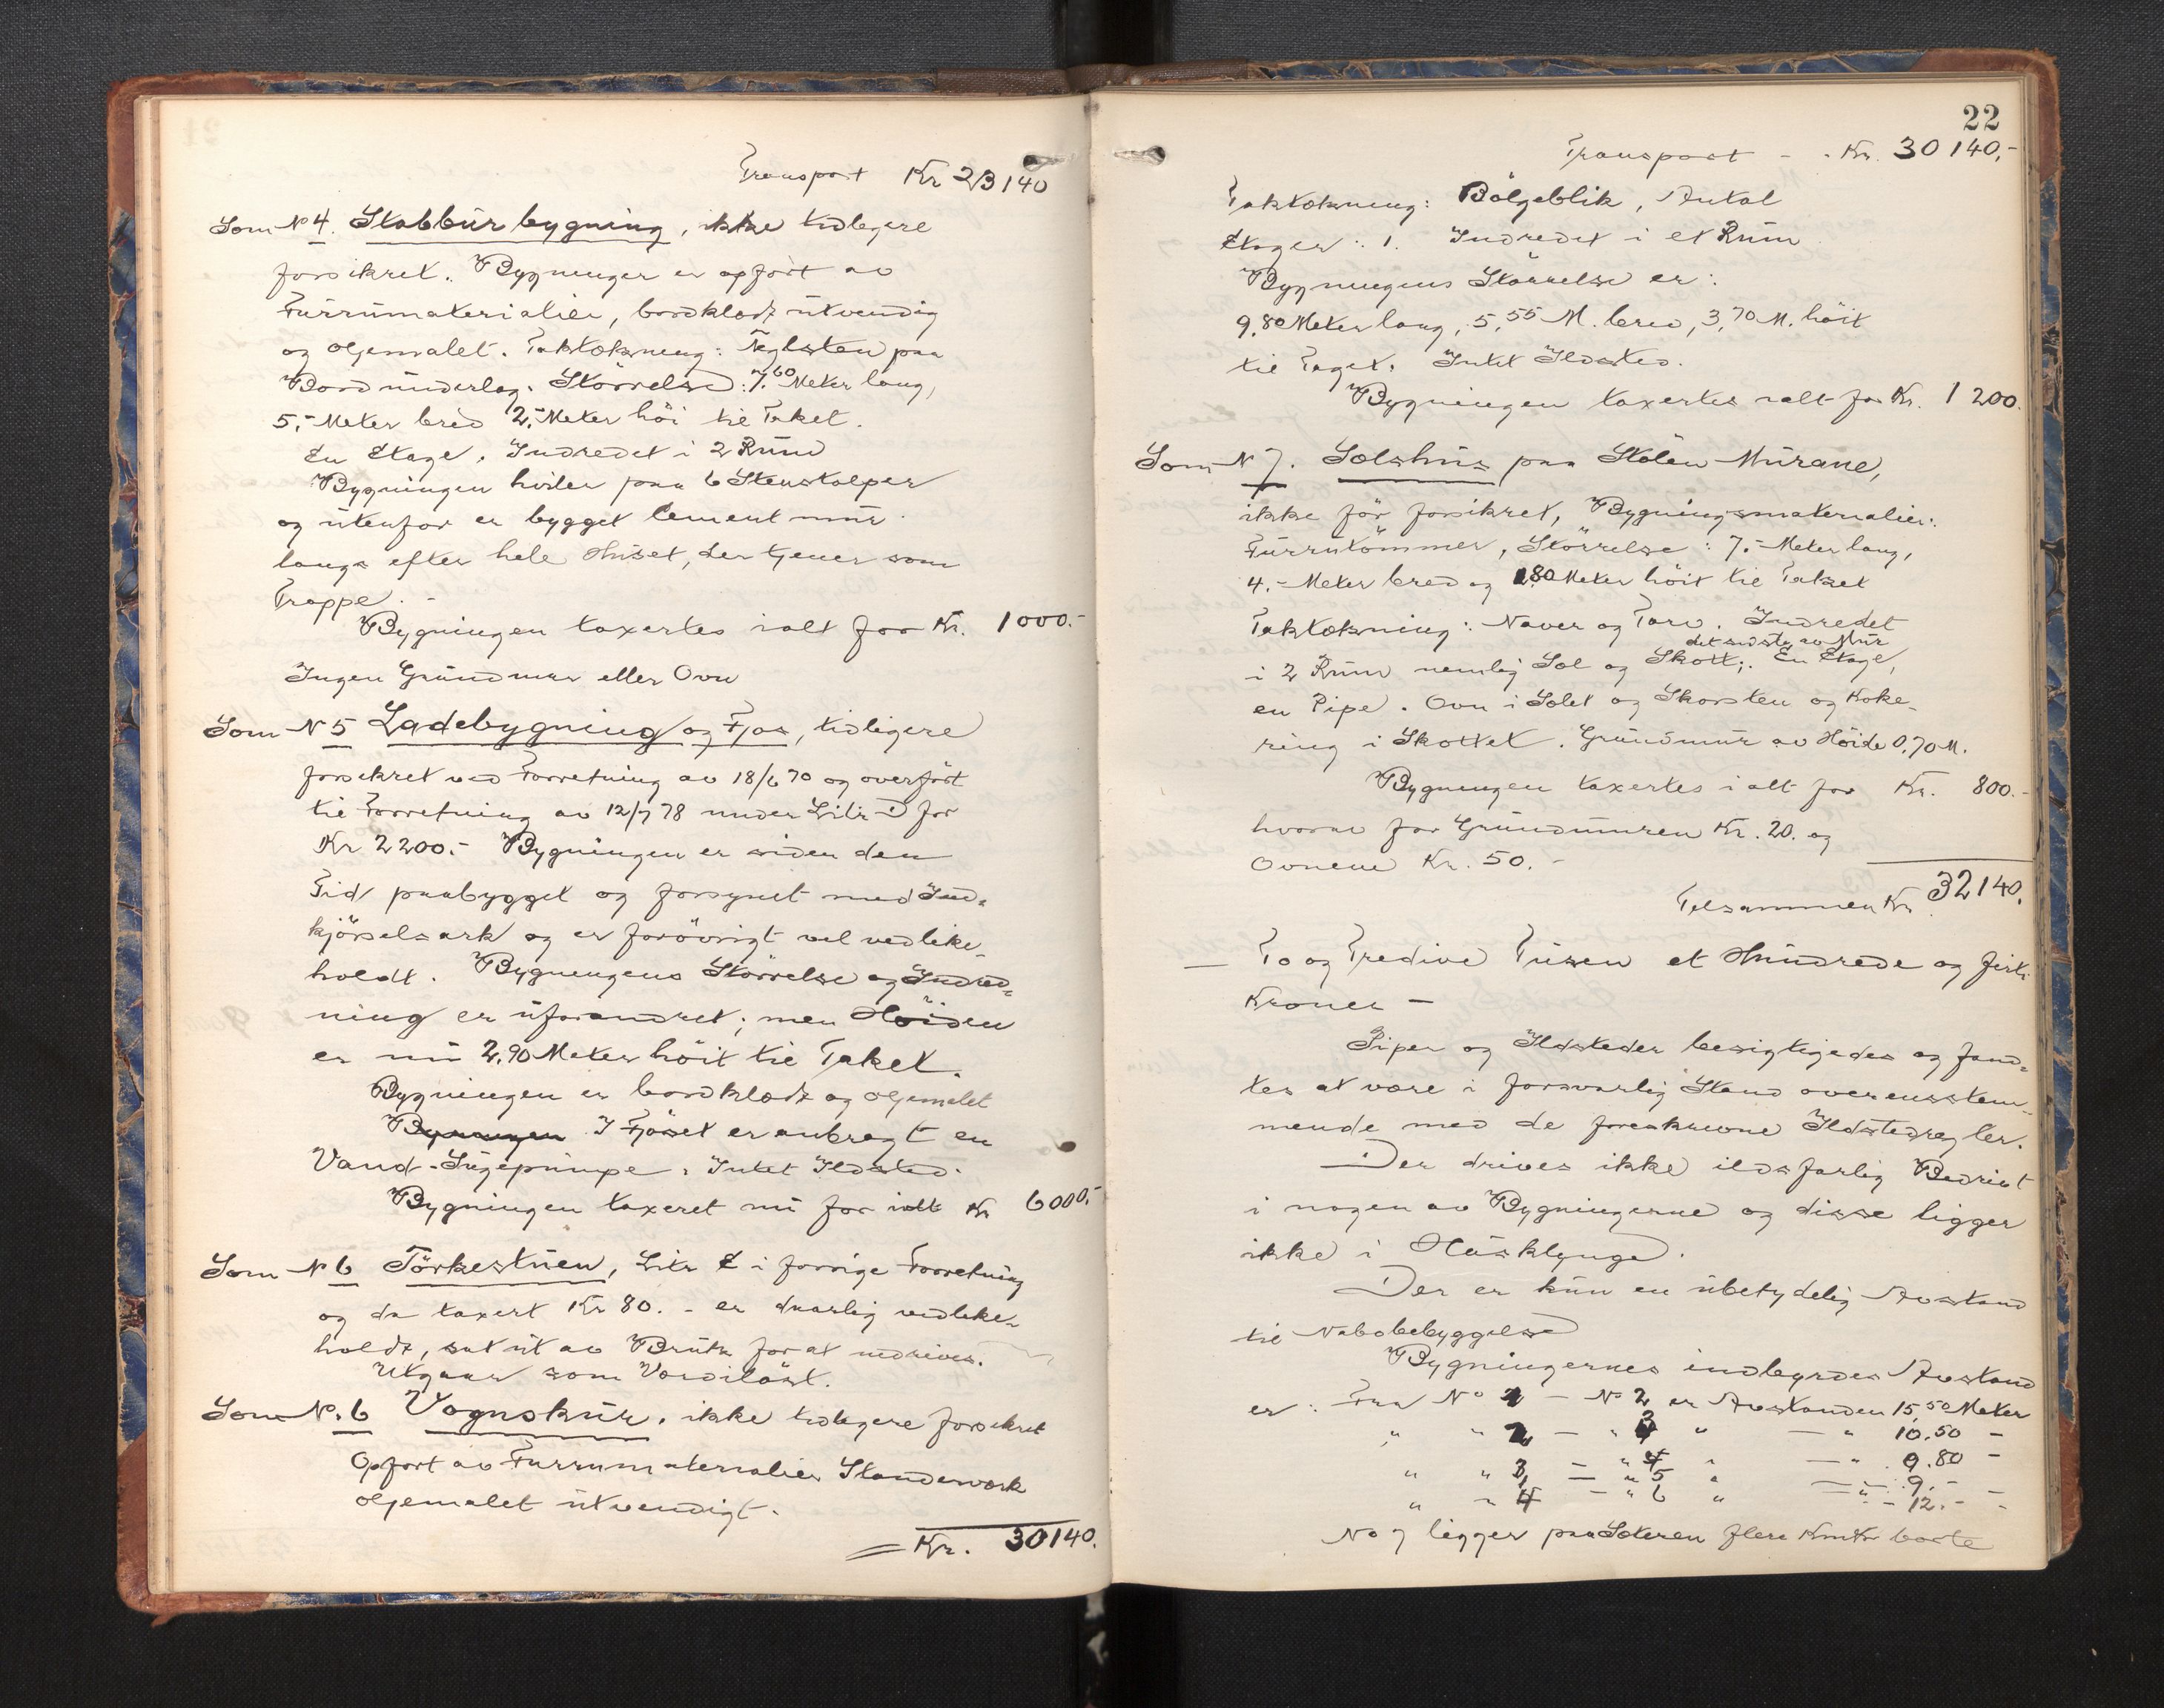 Transport Kr 23140
Som No 4. Stabbürbygning, ikke tidligere
forsikret. Bygninger er opført av
Fürrümaterialier, bordklædt utvendig
og oljemalet. Taktækning: Teglsten paa
Bord ünderlag. Størrelse: 7.60 Meter lang,
5,- Meter bred 2,- Meter høi til Taket.
En Etage. Indredet i 2 Rüm
Bygningen hviler paa 6 Stenstolper
og ütenfor er bygget Cement mür
langs efter hele Hüset, der tjener som
Trappe. -
Bygningen taxertes ialt for Kr. 1000.-
Ingen Gründmur eller Ovn
Som No 5 Ladebygning og Fjøs, tidligere
forsikret ved Forretning av 18/6 70 og overført
til Forretning av 12/7 78 under Litr D for
Kr 2200.- Bygningen er siden den
Tid paabygget og forsynet med Ind-
kjørselsark og er forøvrigt vel vedlike-
holdt. Bygningens Størrelse og Indred-
ning er üforandret; men Høiden
er nü 2,90 Meter høit til Taket.
Bygningen er bordklædt og oljemalet
Bygningen I Fjøset er anbragt en
Vand-Sügepümpe. Intet Ildsted.
Bygningen taxeret nü for ialt Kr 6000.-
Som No 6 Tørkestüen, Litr E i forrige Forretning
og da taxert Kr 80. - er daarlig vedlike-
holdt, sat üt av Brük for at nedrives.
Utgaar som Værdiløst.
Som No. 6 Vognskür, ikke tidligere forsikret
Opført av Furrumaterialier Standerværk
oljemalet ütvendigt.
Kr. 30140.
22
Transport - . Kr. 30140,-
Taktækning: Bölgeblik, Antal
Etager: 1. Indredet i et Rüm
Bygningens Størrelse er:
9,80 Meter lang, 5,55 M. bred, 3,70 M. høit
til Taget. Intet Ildsted.
Bygningen taxertes ialt for Kr. 1200.
Som No 7. Selshüs paa Stølen Mürane,
ikke før forsikret, Bygningsmaterialier:
Fürrütømmer, Størrelse: 7.- Meter lang,
4.- Meter bred og 1,80 Meter høit til Taket
Taktækning: Næver og Torv. Indredet
det sidste av Mür
i 2 Rüm nemlig Sel og Skott;. En Etage,
en Pipe. Ovn i Selet og Skorsten og Koke-
ring i Skottet. Gründmür av Høide 0,70 M.
Bygningen taxertes i alt for Kr. 800.-
hvorav for Gründmüren Kr. 20. og
Ovnene Kr. 50.-
Tilsammen Kr 32140.
— To og Tredive Tüsen et Hündrede og firti
Kroner —
Piper og Ildsteder besigtigedes og fand-
tes at være i forsvarlig Stand overensstem-
mende med de foreskrevne Ildstedregler.
Der drives ikke ildsfarlig Bedrivt
i nogen av Bygningerne og disse ligger
ikke i Hüsklynge.
Der er kün en übetydelig Avstand
til Nabobebyggelse
Bygningernes indbyrdes Avstand
er: Fra No 1 — No 2 er Avstanden 15,50 Meter
" " 2 — " 3 " — " 10.50 -
" " 3 — " 4 " — " 9.80 -
— " 5 " — " 9.- -
" " 4 — " 6 " — " 12.- -
No 7 ligger paa Sæteren flere Kmtr borte